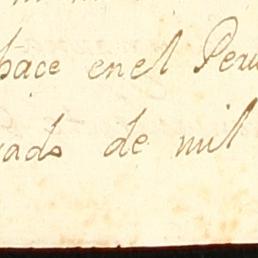 hace enel Peru
de mil